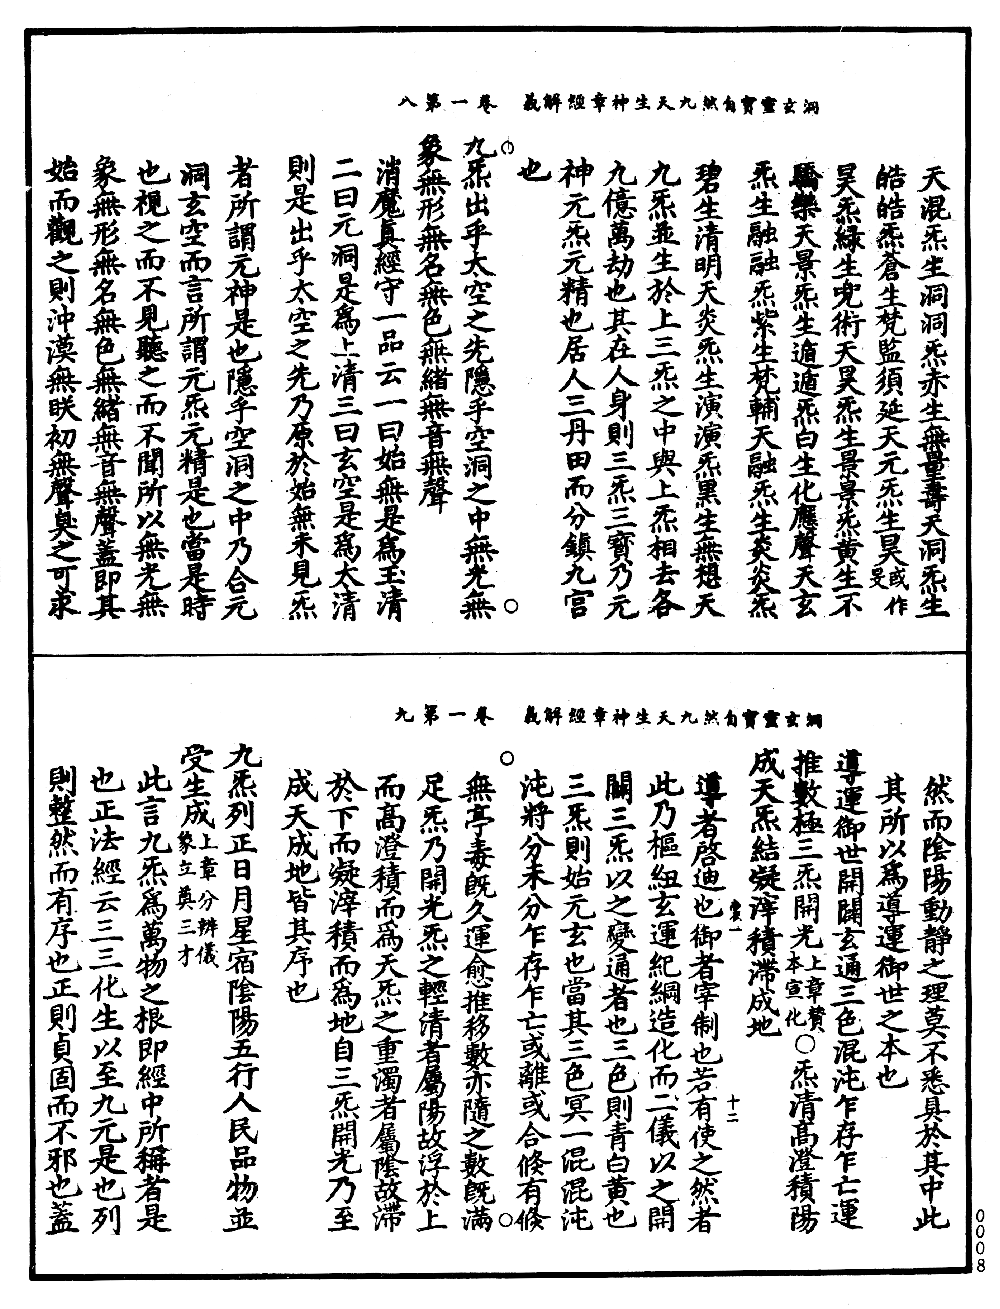 洞玄靈寶自然九天生神章經解義　卷一第八
天混炁生洞洞炁赤生無量壽天洞炁生
皓皓炁蒼生梵監須延天元炁生昊或作旻
昊炁綠生兜術天昊炁生景景炁黃生不
驕樂天景炁生遁遁炁白生化應聲天玄
炁生融融炁紫生梵輔天融炁生炎炎炁
碧生清明天炎炁生演演炁黑生無想天
九炁並生於上三炁之中與上炁相去各
九億萬劫也其在人身則三炁三寶乃元
神元炁元精也居人三丹田而分鎮九宮
也
九炁出乎太空之先隱乎空洞之中無光無
象無形無名無色無緒無音無聲
消魔真經守一品云一曰始無是為玉清
二曰元洞是為上清三曰玄空是為太清
則是出乎太空之先乃原於始無未見炁
者所謂元神是也隱乎空洞之中乃合元
洞玄空而言所謂元炁元精是也當是時
也視之而不見聽之而不聞所以無光無
象無形無名無色無緒無音無聲蓋即其
始而觀之則沖漠無眹初無聲臭之可求
洞玄靈寶自然九天生神章經解義　卷一第九
然而陰陽動靜之理莫不悉具於其中此
其所以為導運御世之本也
導運御世開闢玄通三色混沌乍存乍亡運
推數極三炁開光上章贊本宣化○炁清高澄積陽
成天炁結凝滓積滯成地
導者啓迪也御者宰制也若有使之然者
此乃樞紐玄運紀綱造化而二儀以之開
闢三炁以之變通者也三色則青白黃也
三炁則始元玄也當其三色冥一混混沌
沌將分未分乍存乍亡或離或合倏有倏
無亭毒既久運愈推移數亦隨之數既滿
足炁乃開光炁之輕清者屬陽故浮於上
而高澄積而為天炁之重濁者屬陰故滯
於下而凝滓積而為地自三炁開光乃至
成天成地皆其序也
九炁列正日月星宿陰陽五行人民品物並
受生成上章分辨儀象立奠三才
此言九炁為萬物之根即經中所稱者是
也正法經云三三化生以至九元是也列
則整然而有序也正則貞固而不邪也蓋
十二
0008